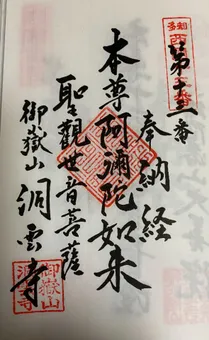 第十三番
奉納経
本尊阿彌陀如来
聖觀世音菩薩
御嶽山洞雲寺
知多西国
御嶽山